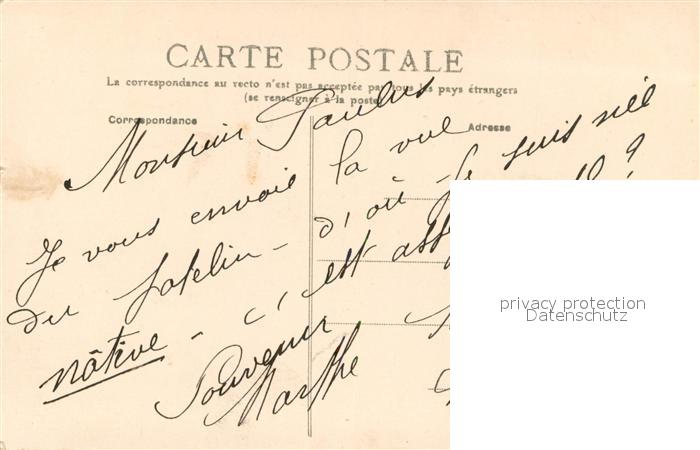 CARTE POSTALE
La correspondance au recto n'est pas acceptée par tous les pays étrangers
(se renseigner à la poste)
Correspondance
Adresse
Monsieur Paulus
Je vous envoie la vue
du d'où je suis née
nâtive - c'est ?
Souvenir
Marthe
privacy protection
Datenschutz